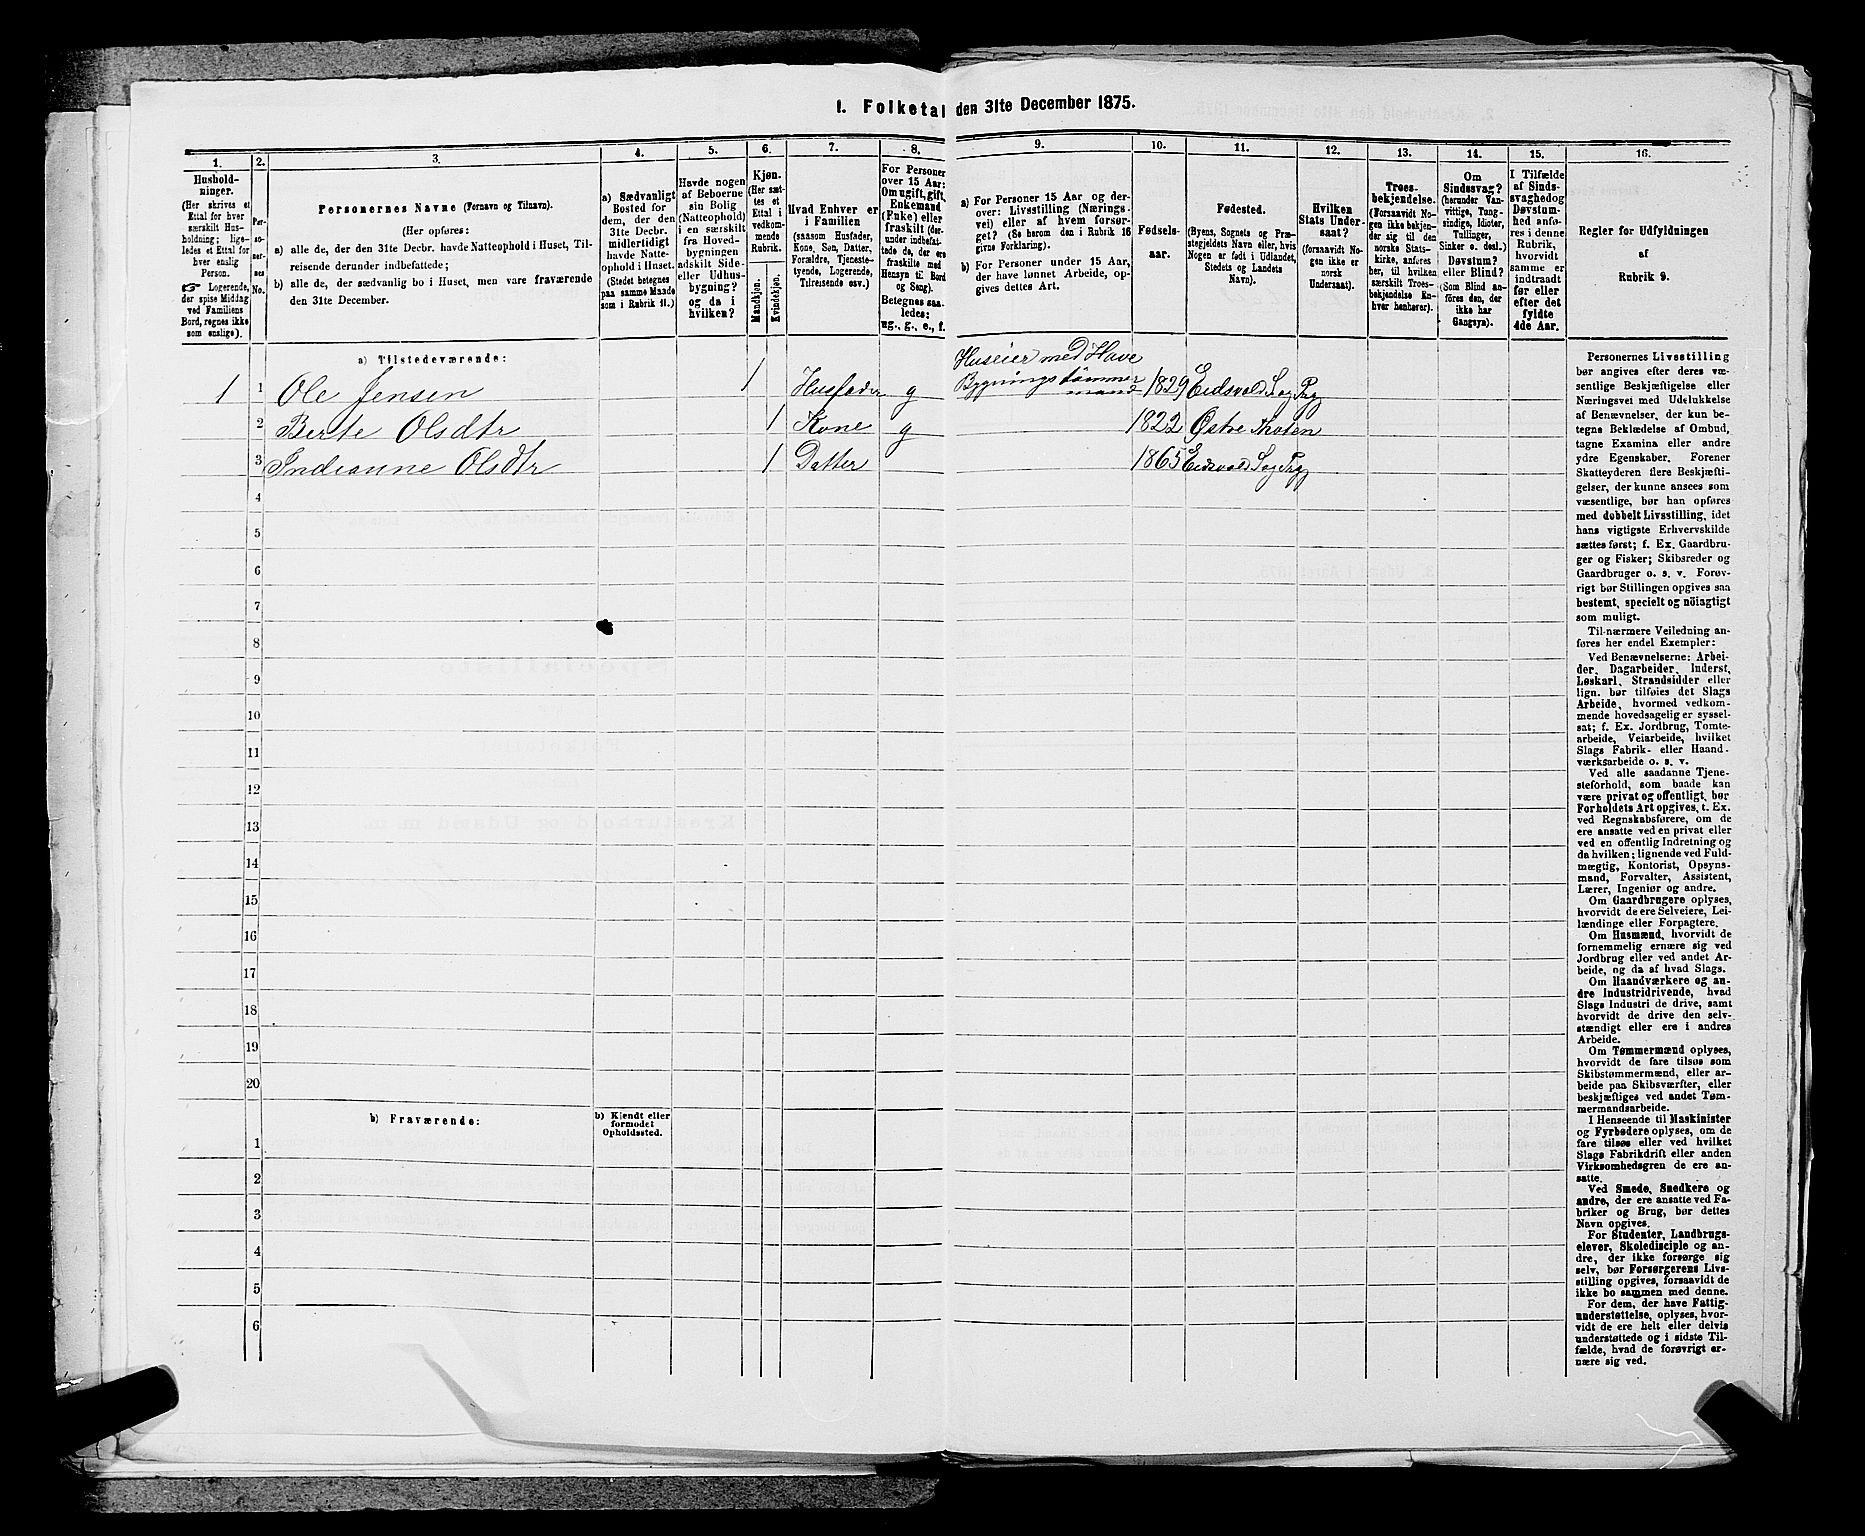 1. Folketal den 31te December 1875.
1.
2.
3.
4.
5.
6.
7.
8.
9.
10.
11.
12.
13.
14.
15.
16.
Hushold-
ninger.
(Her skrives et
Ettal for hver
særskilt Hus-
holdning; lige-
ledes et Ettal for
hver enslig
Person.
☞ Logerende,
der spise Middag
ved Familiens
Bord, regnes ikke
som enslige).
Per-
so-
ner-
nes
No.
Personernes Navne (Fornavn og Tilnavn).
(Her opføres:
a) alle de, der den 31te Decbr. havde Natteophold i Huset, Til-
reisende derunder indbefattede;
b) alle de, der sædvanlig bo i Huset, men vare fraværende
den 31te December.
a) Sædvanligt
Bosted for
dem, der den
31te Decbr.
midlertidigt
havde Natte-
ophold i Huset.
(Stedet betegnes
paa samme Maade
som i Rubrik 11.)
Havde nogen
af Beboerne
sin Bolig
(Natteophold)
i en særskilt
fra Hoved-
bygningen
adskilt Side-
eller Udhus-
bygning?
og da i
hvilken?
Kjøn.
(Her sæt-
tes et
Ettal i
vedkom-
mende
Rubrik.
Mandkjøn.
Kvindekjøn.
Hvad Enhver er
i Familien
(saasom Husfader,
Kone, Søn, Datter,
Forældre, Tjeneste-
tyende, Logerende,
Tilreisende osv.)
For Personer
over 15 Aar:
Om ugift, gift,
Enkemand
(Enke) eller
fraskilt (der-
under indbefat-
tede de, der ere
fraskilte med
Hensyn til Bord
og Seng).
Betegnes saa-
ledes:
ug., g., e., f.
a) For Personer 15 Aar og der-
over: Livsstilling (Nærings-
vei) eller af hvem forsør-
get? (Se herom den i Rubrik 16
givne Forklaring).
b) For Personer under 15 Aar,
der have lønnet Arbeide, op-
gives dettes Art.
Fødsels-
aar.
Fødested.
(Byens, Sognets og Præ-
stegjeldets Navn eller, hvis
Nogen er født i Udlandet,
Stedets og Landets
Navn).
Hvilken
Stats Under-
saat?
(forsaavidt No-
gen ikke er
norsk
Undersaat).
Troes-
bekjendelse.
(Forsaavidt No-
gen ikke bekjen-
der sig til den
norske Stats-
kirke, anføres
her, til hvilken
særskilt Troes-
bekjendelse En-
hver henhører).
Om
Sindssvag?
(herunder Van-
vittige, Tung-
sindige, Idioter,
Tullinger,
Sinker o. desl.)
Døvstum?
eller Blind?
(Som Blind an-
føres den, der
ikke har
Gangsyn).
I Tilfælde
af Sinds-
svaghed og
Døvstum-
hed anfø-
res i denne
Rubrik,
hvorvidt
samme er
indtraadt
før eller
efter det
fyldte
4de Aar.
Regler for Udfyldningen
af
Rubrik 9.
a) Tilstedeværende:
1 1 Ole Jensen 1 Husfader g Huseier med Have
Bygningstømmer
mand 1829 Eidsvold Sog Prg
2 Berte Olsdtr 1 Kone g 1822 Østre Thoten
3 Indianne Olsdtr 1 Datter 1865 Eidsvold Sog Prg
4
5
6
7
8
9
10
11
12
13
14
15
16
17
18
19
20
b) Fraværende:
b) Kjendt eller
formodet
Opholdssted.
1
2
3
4
5
6
Personernes Livsstilling
bør angives efter deres væ-
sentlige Beskjæftigelse eller
Næringsvei med Udelukkelse
af Benævnelser, der kun be-
tegne Beklædelse af Ombud,
tagne Examina eller andre
ydre Egenskaber. Forener
Skatteyderen flere Beskjæfti-
gelser, der kunne ansees som
væsentlige, bør han opføres
med dobbelt Livsstilling, idet
hans vigtigste Erhvervskilde
sættes først; f. Ex. Gaardbru-
ger og Fisker; Skibsreder og
Gaardbruger o. s. v. Forøv-
rigt bør Stillingen opgives saa
bestemt, specielt og nöiagtigt
som muligt.
Til nærmere Veiledning an-
føres her endel Exempler:
Ved Benævnelserne: Arbei-
der, Dagarbeider, Inderst,
Løskarl, Strandsidder eller
lign. bør tilføies det Slags
Arbeide, hvormed vedkom-
mende hovedsagelig er syssel-
sat; f. Ex. Jordbrug, Tomte-
arbeide, Veiarbeide, hvilket
Slags Fabrik- eller Haand-
værksarbeide o. s. v.
Ved alle saadanne Tjene-
steforhold, som baade kan
være privat og offentligt, bør
Forholdets Art opgives, t. Ex.
ved Regnskabsførere, om de
ere ansatte ved en privat eller
ved en offentlig Indretning og
da hvilken; lignende ved Fuld-
mægtig, Kontorist, Opsyns-
mand, Forvalter, Assistent,
Lærer, Ingeniør og andre.
Om Gaardbrugere oplyses,
hvorvidt de ere Selveiere, Lei-
lændinge eller Forpagtere.
Om Husmænd, hvorvidt de
fornemmelig ernære sig ved
Jordbrug eller ved andet Ar-
beide, og da af hvad Slags.
Om Haandværkere og an-
dre Industridrivende, hvad
Slags Industri de drive, samt
hvorvidt de drive den selv-
stændigt eller ere i andres
Arbeide.
Om Tømmermænd oplyses,
hvorvidt de fare tilsøs som
Skibstømmermænd, eller ar-
beide paa Skibsværfter, eller
beskjæftiges ved andet Tøm-
mermandsarbeide.
I Henseende til Maskinister
og Fyrbødere oplyses, om de
fare tilsøs eller ved hvilket
Slags Fabrikdrift eller anden
Virksomhedsgren de ere an-
satte.
Ved Smede, Snedkere og
andre, der ere ansatte ved Fa-
briker og Brug, bør dettes
Navn opgives.
For Studenter, Landbrugs-
elever, Skoledisciple og an-
dre, der ikke forsørge sig
selv, bør Forsørgerens Livs-
stilling opgives, forsaavidt de
ikke bo sammen med denne.
For dem, der have Fattig-
understøttelse, oplyses, hvor-
vidt de ere helt eller delvis
understøttede og i sidste Til-
fælde, hvad de forøvrigt er-
nære sig ved.